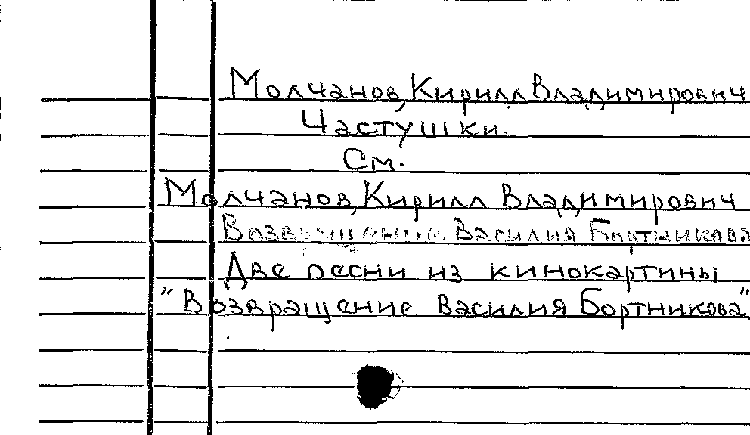 Молчанов, Кирилл Владимирович
Частушки.
См.
Молчанов, Кирилл Владимирович
Возвращение Василия Бортникова
Две песни из кинокартины
"Возвращение Василия Бортникова"